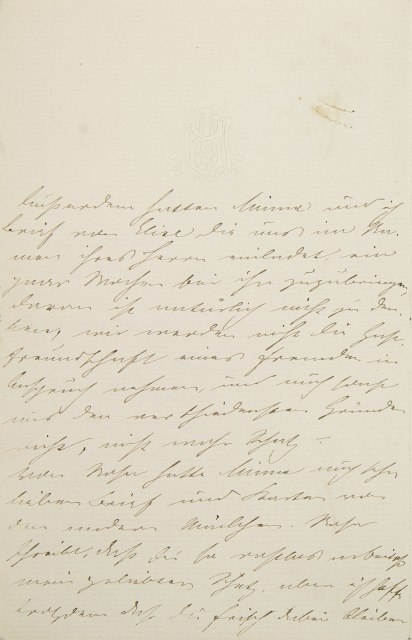 Außerdem hatten Minna und ich
Brief von Elise die uns im Na-
men ihres Herrn einladet, ein
paar Wochen bei ihr zuzubringen,
davon ist natürlich nicht zu den-
ken, wir werden nicht die Gast-
freundschaft eines Fremden in
Anspruch nehmen, und auch sonst
aus den verschiedensten Gründen
nicht, nicht wahr Schatz –
Von Mama hatte Minna auch sehr
lieben Brief und Karten von
den anderen Mädchen.
schreibt, daß du so rastlos arbeitest
mein geliebter Schatz, aber ich hoffe
trotzdem daß du frisch dabei bleiben